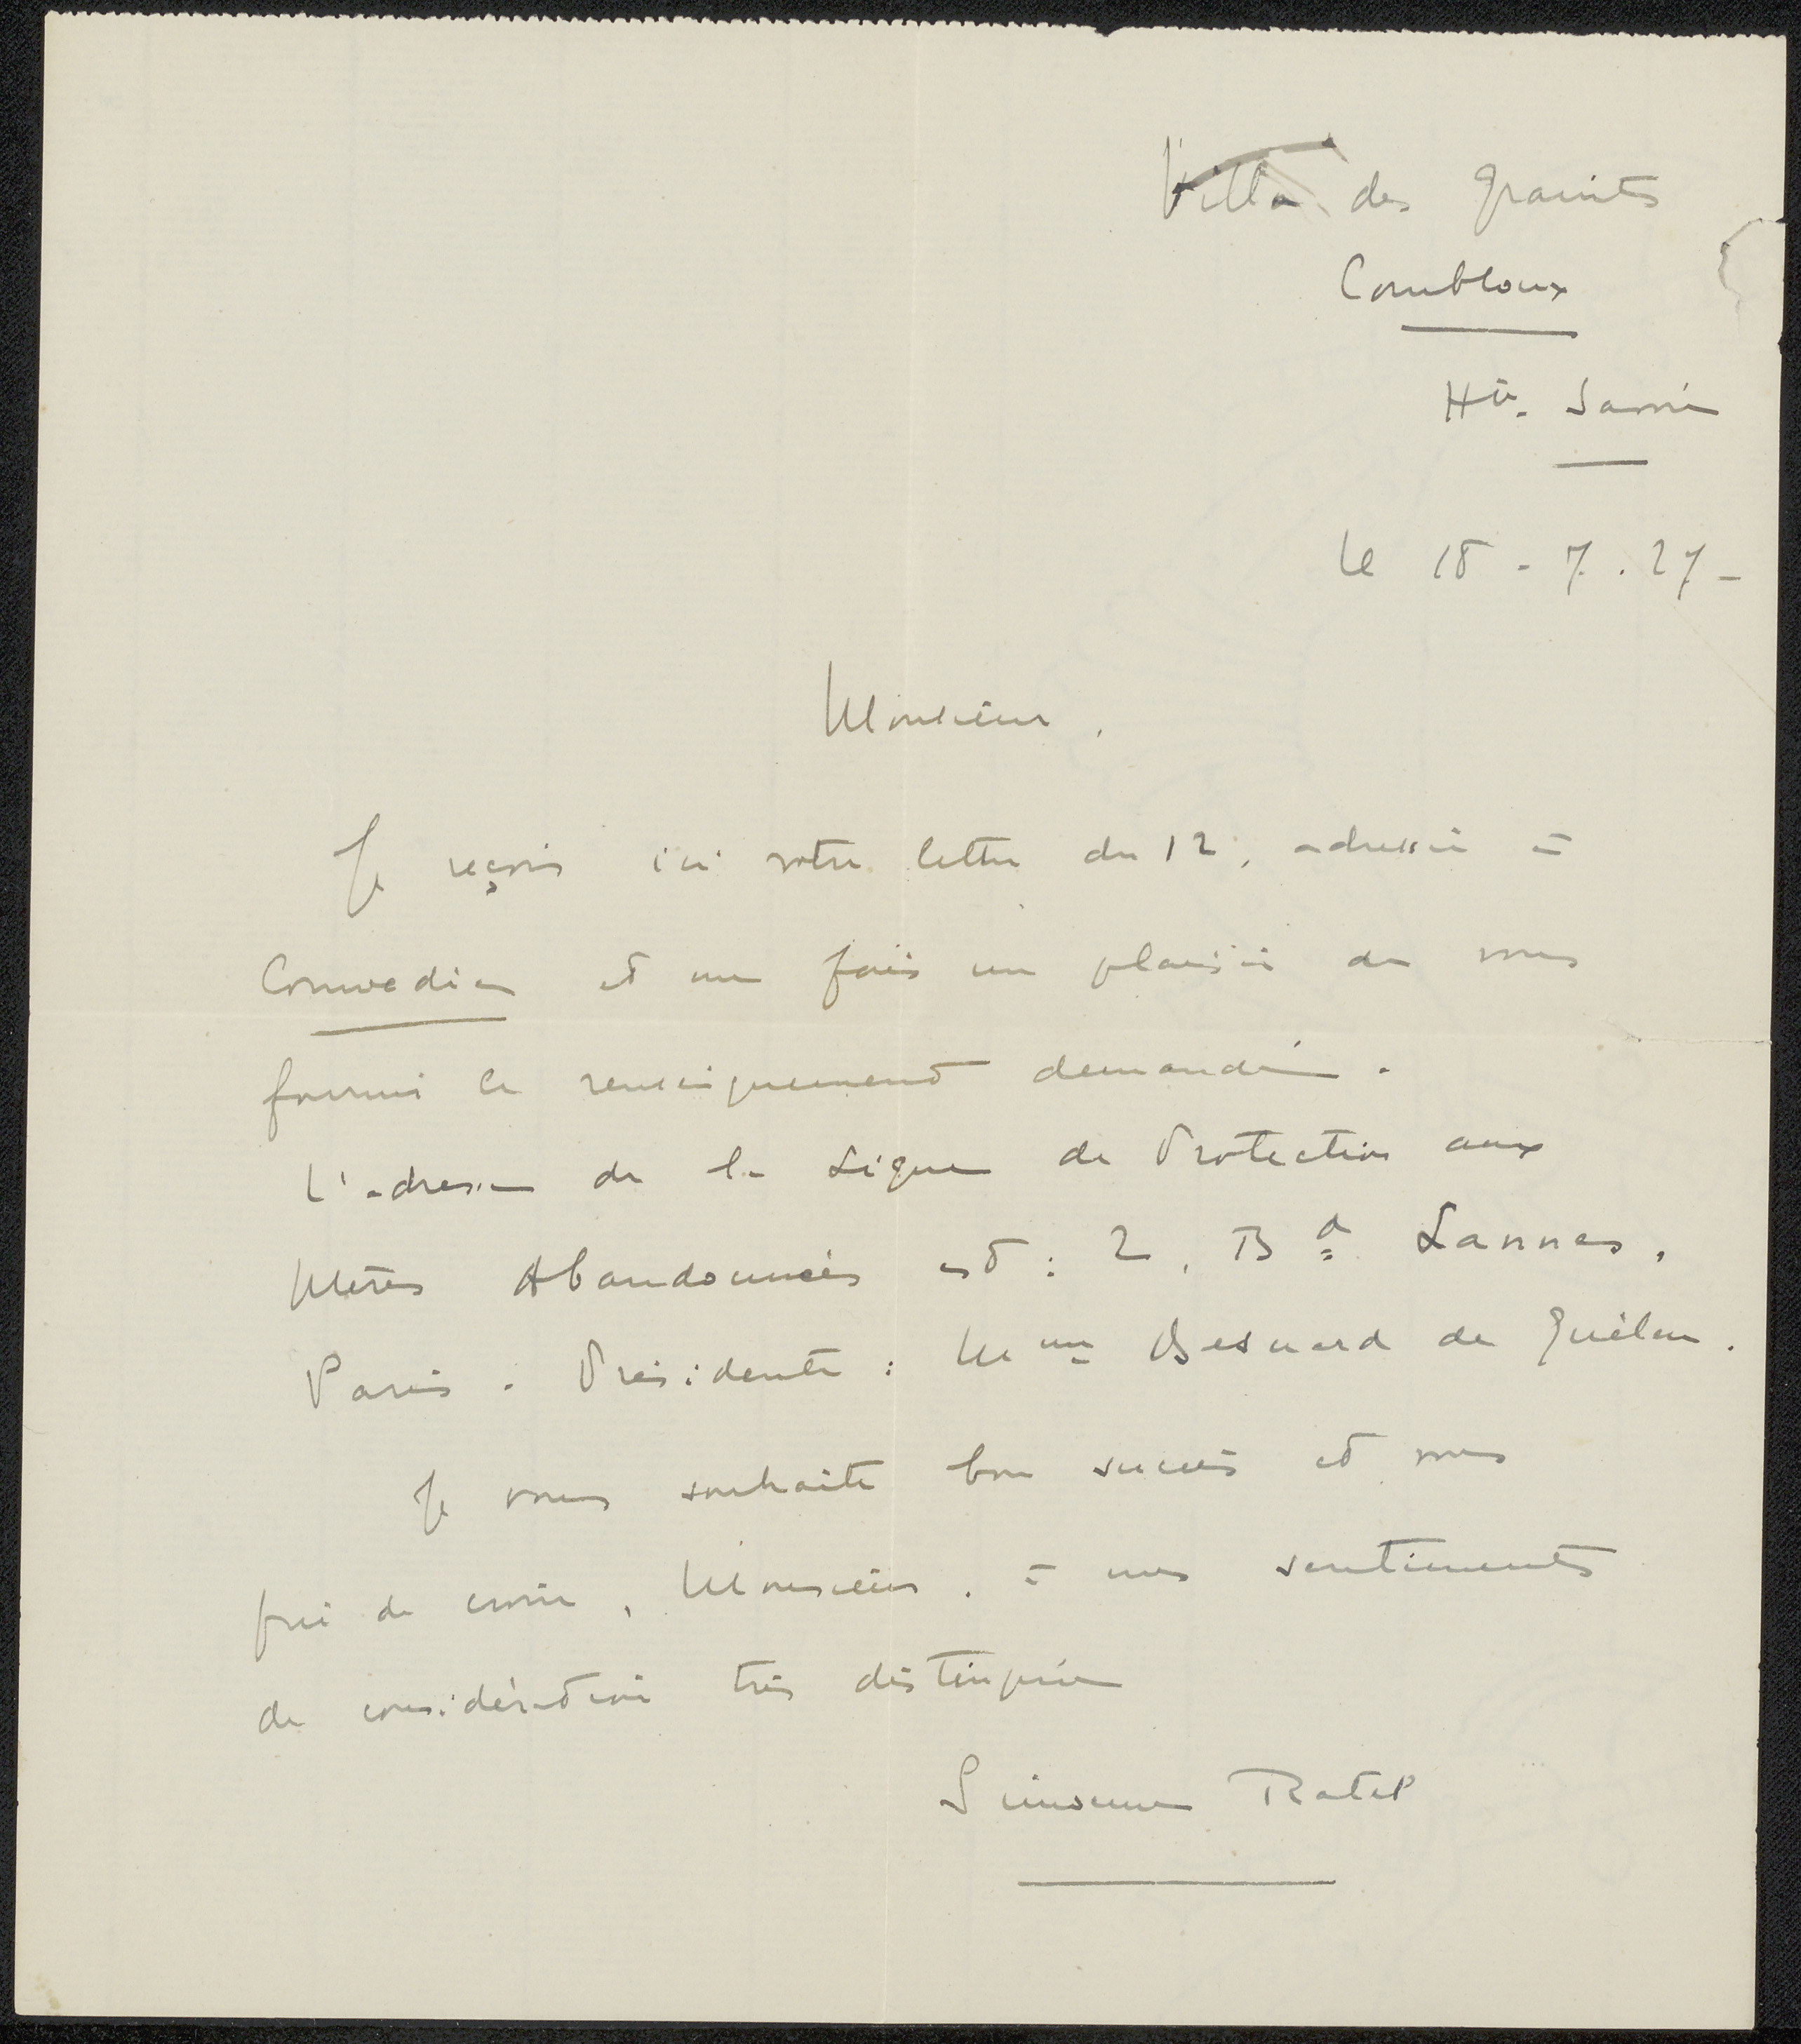 Villa des Granits
Combloux
Hte. Savoie
le 18 - 7. 27 -
Monsieur,
Je reçois ici votre lettre du 12, adressée à
Comoedia et me fais un plaisir de vous
fournir le renseignement demandé.
L'adresse de la Ligue de Protection aux
Mères Abandonnées est : 2, Bd Lannes,
Paris. Présidente : Mme Besnard de Quélen.
Je vous souhaite bon succès et vous
prie de croire, Monsieur, à mes sentiments
de considération très distinguée
Simonne Ratel